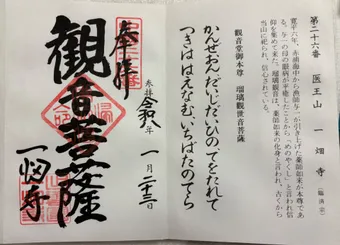 第二十六番 医王山 一畑寺(臨済宗)
寛平六年、赤浦海中から漁師与一が引き上げた薬師如来が本尊であ
る。与一の母の眼病が平癒したことから「めのやくし」と言われ信
仰を集めて来た。瑠璃観音は、薬師如来の化身と言われ、古くから
当山に祀られ、信心されている。
観音堂御本尊 瑠璃観世音菩薩
かんぜおんだいじだいひのてをたれて
つきはばえなむいちばたのてら
奉拝
参拝 令和 年 一月二十三日
観音菩薩
一畑寺